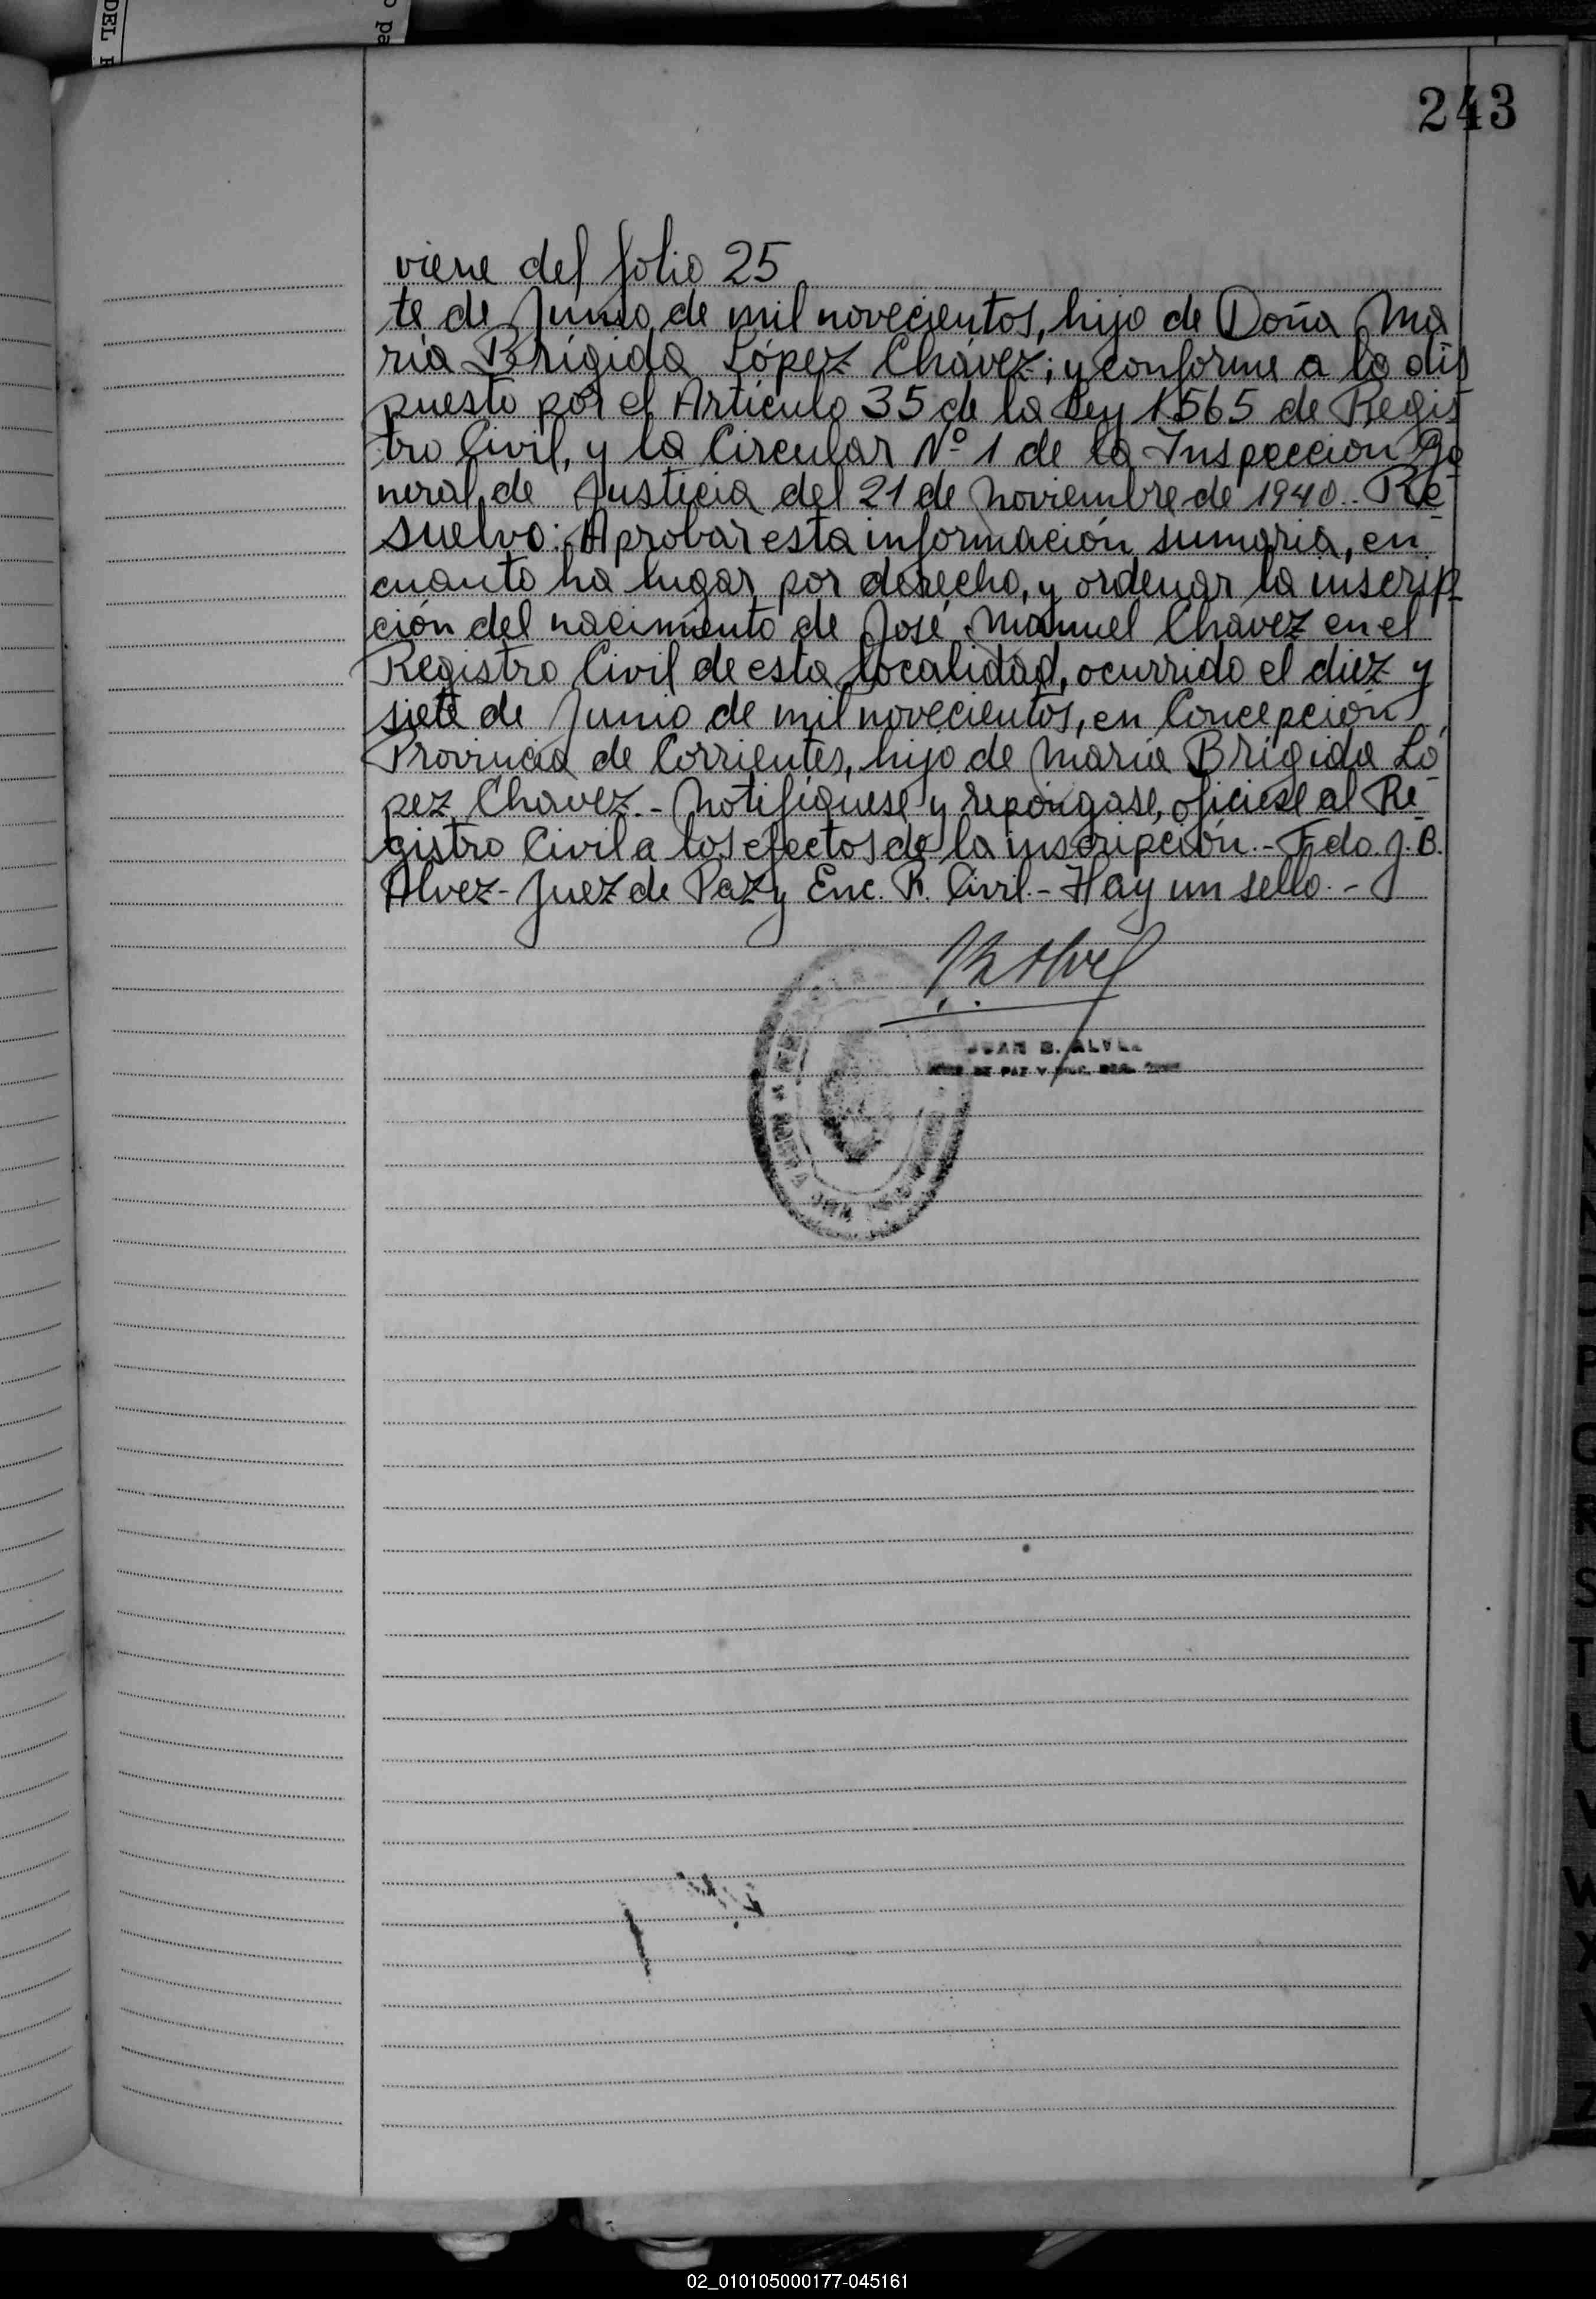 243
viene del folio 25
te de Junio de mil novecientos, hijo de Doña Ma
ría Brígida López Chávez; y conforme a lo dis
puesto por el Artículo 35 de la Ley 1565 de Regis
tro Civil, y la Circular Nº 1 de la Inspección Ge
neral de Justicia del 21 de Noviembre de 1940.- Re-
suelvo: Aprobar esta información sumaria, en
cuanto ha lugar por derecho, y ordenar la inscrip
ción del nacimiento de José Manuel Chavez en el
Registro Civil de esta localidad, ocurrido el diez y
siete de Junio de mil novecientos, en Concepción
Provincia de Corrientes, hijo de María Brígida Ló-
pez Chavez.- Notifíquese y repóngase, ofíciese al Re-
gistro Civil a los efectos de la inscripción.- Fdo. J. B.
Alvez- Juez de Paz y Enc. R. Civil.- Hay un sello.-
JUAN B. ALVEZ
DE PAZ Y
DEL
o pa
P
O
R
S
T
U
V
W
X
Y
Z
02_010105000177-045161